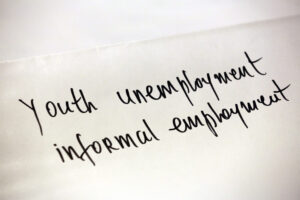 Youth unemployment
informal employment